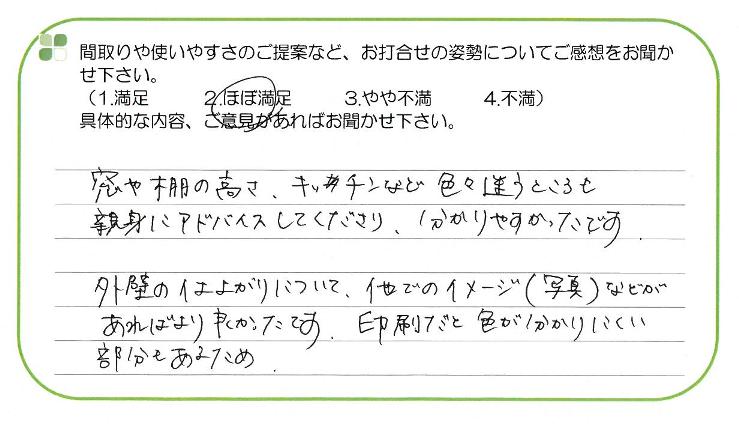 間取りや使いやすさのご提案など、お打合せの姿勢についてご感想をお聞か
せ下さい。
（1.満足　2.ほぼ満足　3.やや不満　4.不満）
具体的な内容、ご意見があればお聞かせ下さい。
窓や棚の高さ、キッチンなど色々迷うところも
親身にアドバイスしてくださり、分かりやすかったです
外壁の仕上がりについて、他でのイメージ(写真)などが
あればより良かったです。印刷だと色が分かりにくい
部分もあるため